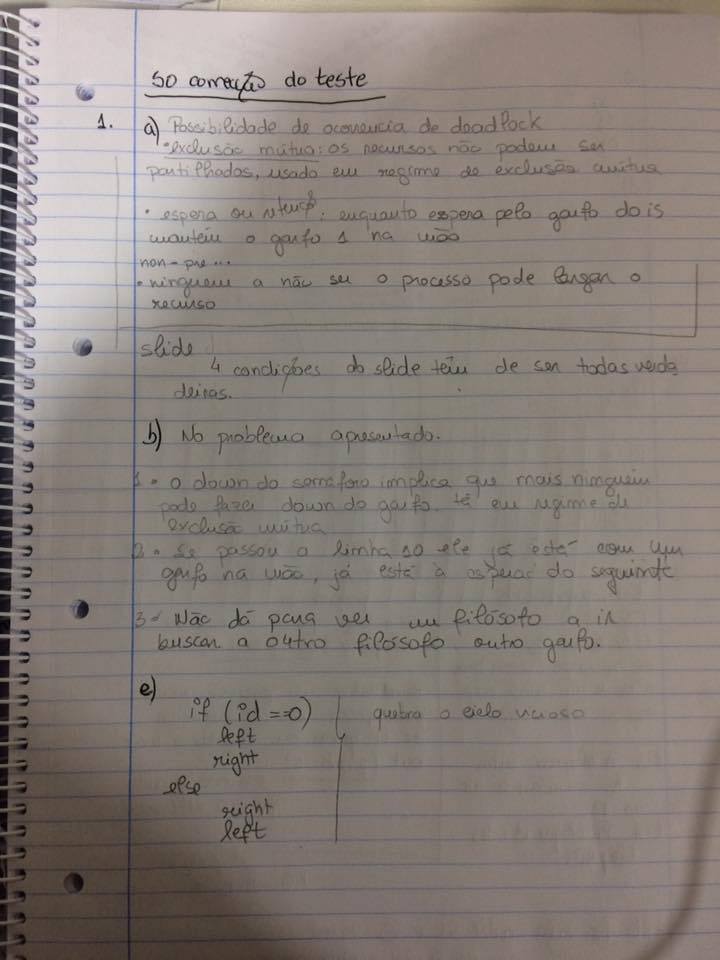 SO correção do teste
1. a) Possibilidade de ocorrencia de deadlock
• exclusão mútua: os recursos não podem ser
partilhados, usado em regime de exclusão mútua
• espera ou retenç: enquanto espera pelo garfo dois
mantém o garfo 1 na mão
non-pre...
• ninguem a não ser o processo pode largar o
recurso
slide
4 condições do slide têm de ser todas verda
deiras.
b) No problema apresentado.
1 • O down do semáforo implica que mais ninguém
pode fazer down do garfo. tá em regime de
exclusão mútua
2 • Se passou a linha 10 ele já está com um
garfo na mão, já está à espera do seguinte
3 • Não dá para ver um filósofo a ir
buscar a outro filósofo outro garfo.
e)
if (id ==0) quebra o ciclo vicioso
left
right
else
right
left